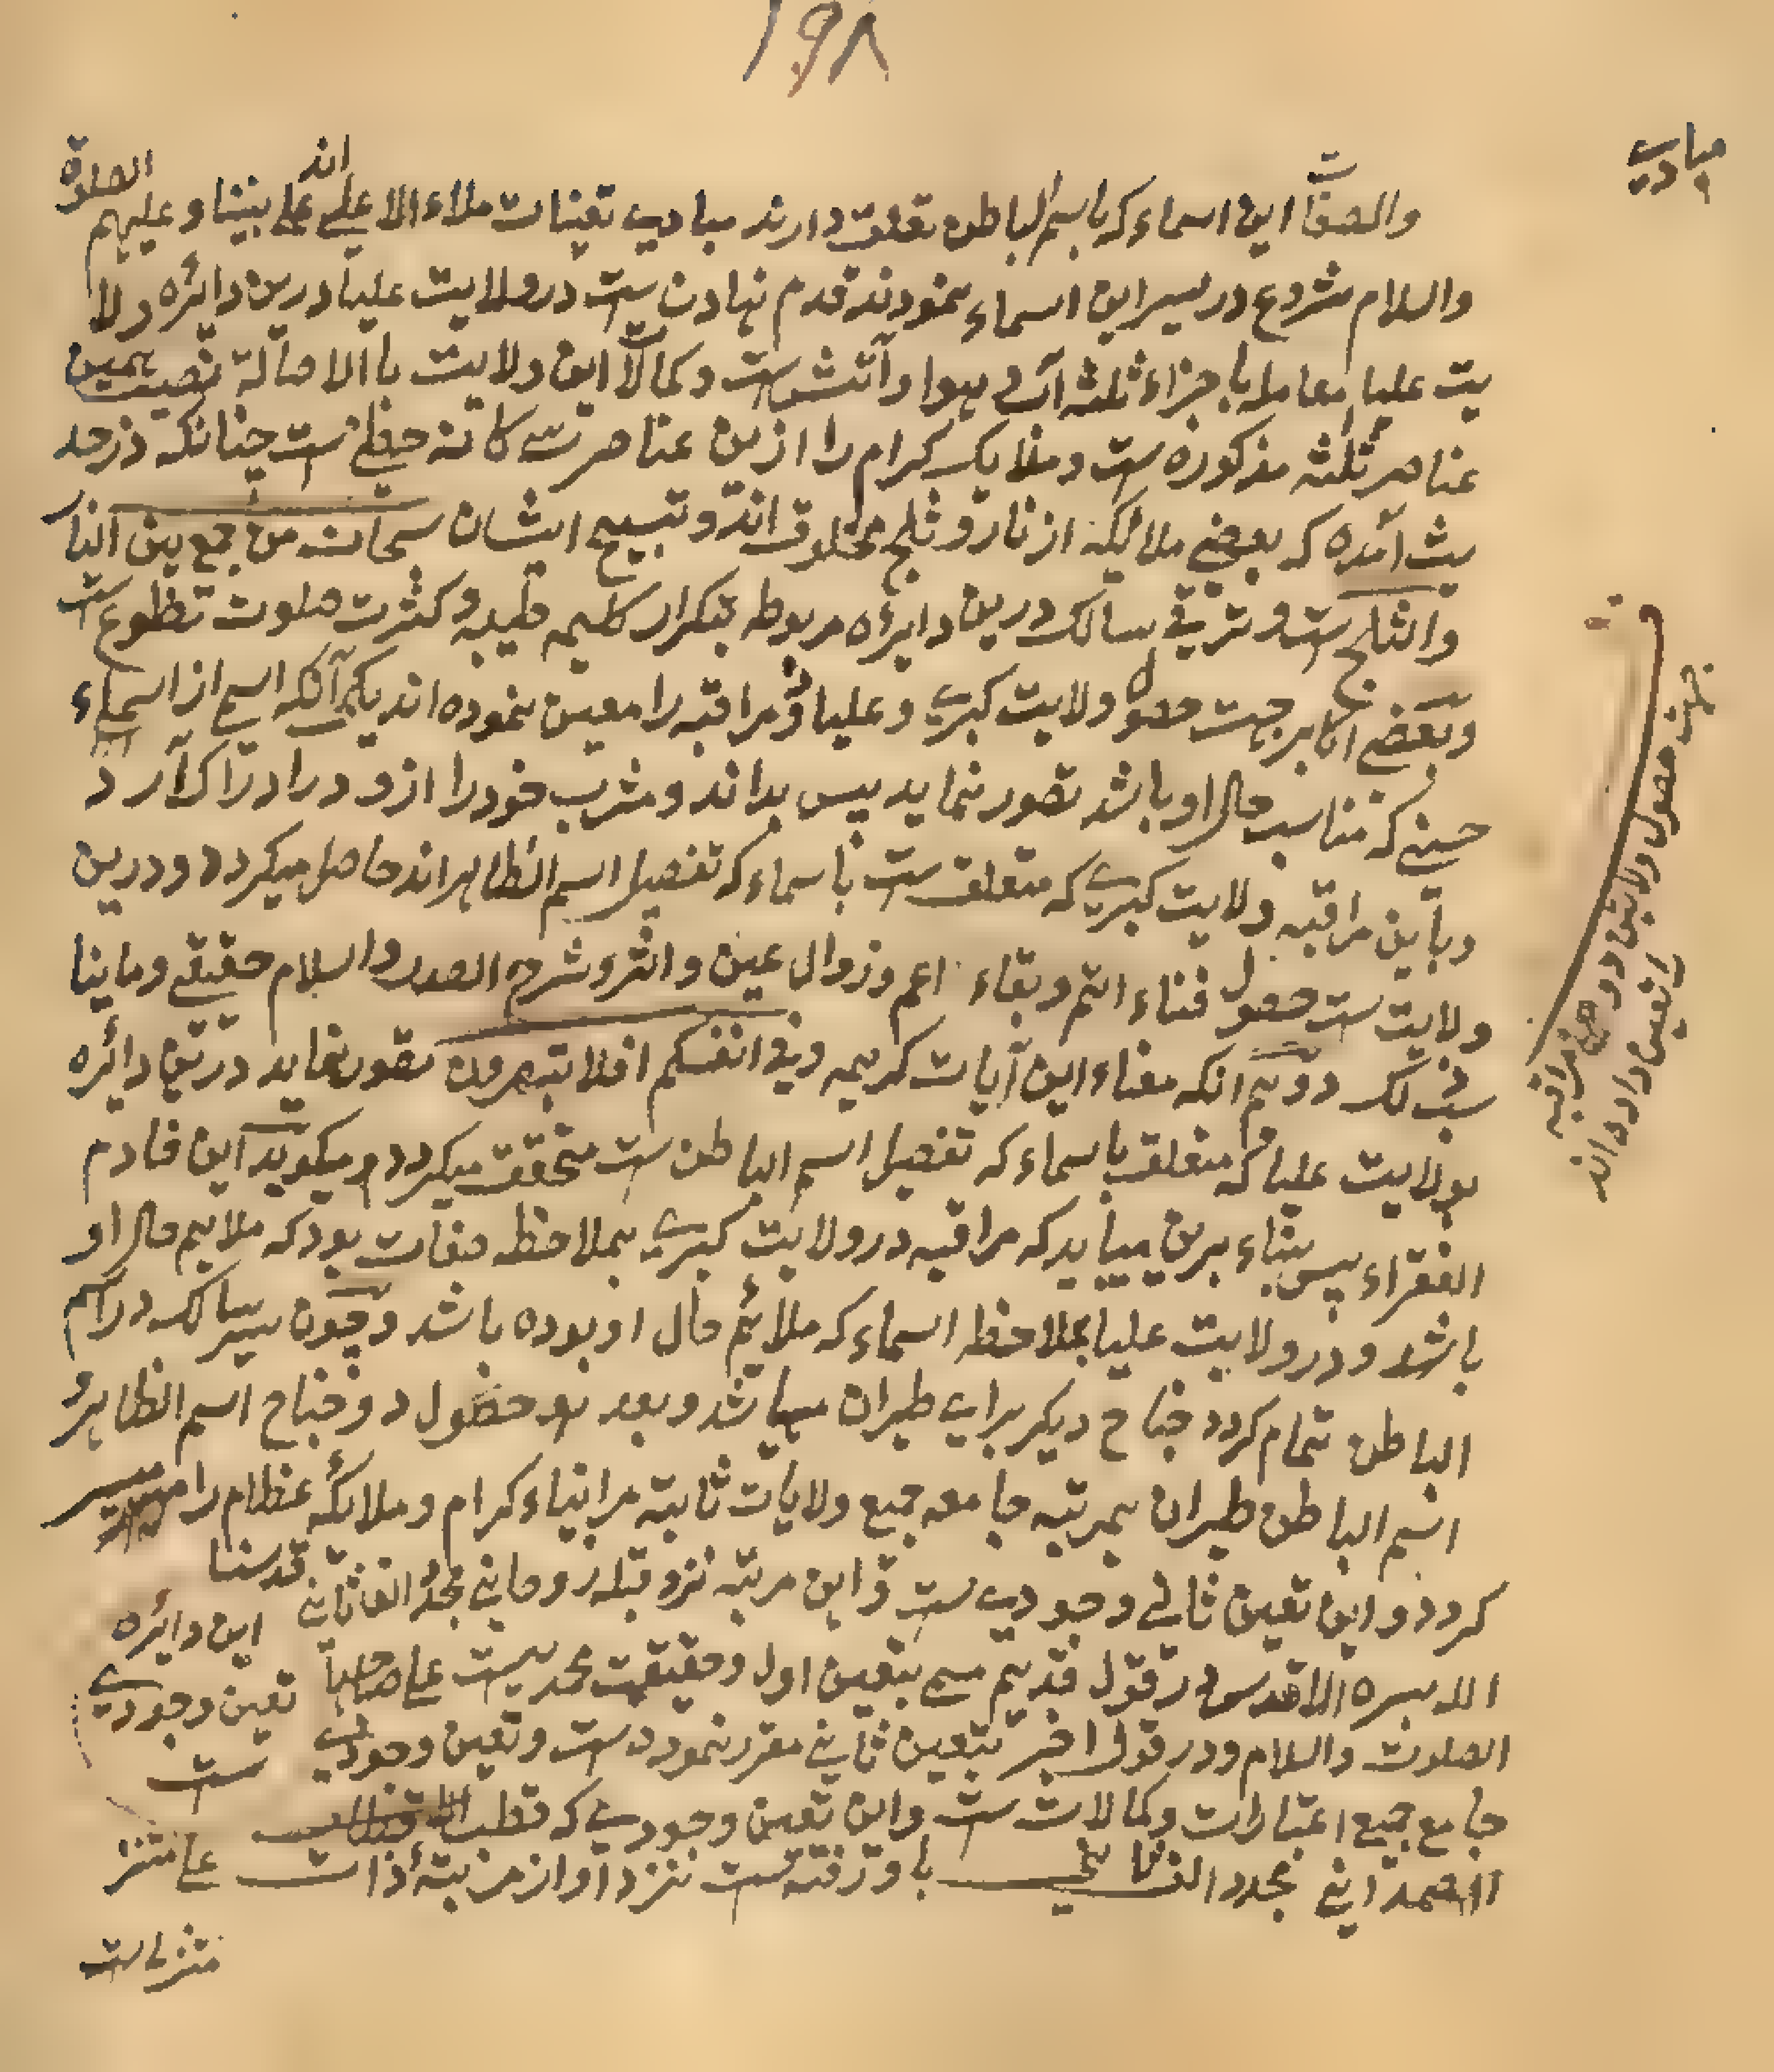 ۱۹۸
مبادی
والصفات این اسماء که باسم الباطن تعلق دارند مبادی تعینات ملاء الاعلی اند علی نبینا و علیهم الصلوة
والسلام شروع در سیر این اسماء نمودند قدم نهادن ست در ولایت علیا درین دایٔره ولا
یت علیا معامله باجزاء ثلثه آب و هوا و آتش ست و کمالات این ولایت باالاصالة نصیب همین
عناصر ثلثه مذکوره ست و ملایک کرام را ازین عناصر سه کانه حظی ست چنانکه در حد
یث آمده که بعضی ملائکه از نار و ثلج مخلوق اند و تسبیح ایشان سبحان من جمع بین النار
والثلج ست و ترقی سالک درین دایرٔه مربوط بتکرار کلیمه طیبه و کثرت صلوت تطوع ست
و بعضی اکابر جهت حصول ولایت کبری و علیا دو مراقبه را معین نموده اند یکم آنکه اسم از اسماء
حسنی که مناسب حال او باشد تصور نماید پس بداند و مشرب خود را ازو در ادراک آرد
و باین مراقبه ولایت کبری که متعلق ست باسماء که تفصیل اسم الظاهر اند حاصل میکردد و درین
ولایت ست حصول فناء اتم و بقاء اعم و زوال عین و اثر و شرح الصدر و اسلام حقیقی و ماینا
سب ذلک دویم انکه معناء این آیات کریمه وفی انفسکم افلا تبصرون تصور نماید درین دائره
بولایت علیا که متعلق باسماء که تفصیل اسم الباطن ست متحقق میکردد میکوید این خادم
الفقراء پس بناء برین میباید که مراقبه در ولایت کبری بملاحظه صفات بود که ملایم حال او
باشد و در ولایت علیا بملاحظه اسماء که ملایٔم حال او بوده باشد و چون سیر سالک در اسم
الباطن تمام کردد جناح دیکر برای طیران میباشد و بعد حصول دو جناح اسم الظاهر و
اسم الباطن طیران بمرتبه جامعه جمیع ولایات ثابته مر انبیاء کرام و ملایکٔه عظام را میسر
کردد و این تعین ثانی وجودی ست و این مرتبه نزد قبله روحانی مجدد الف ثانی قدسنا
الله بسره الاقدس در قول قدیم مسمی بتعین اول و حقیقت محمدیست علی صاحبها
الصلوت والسلام و در قول اخر بتعین ثانی مقرر نمودد ست و تعین وجودی
جامع جمیع اعتبارات و کمالات ست و این تعین وجودی که قطب
الصمدانی مجدد الف ثانی باو رفته ست نزد او از مرتبهٔ ذات
متنزل ست
این دایٔره
تعین وجودی
ست
جهت حصول ولایتین دو مراقبه
را تعین داده اند